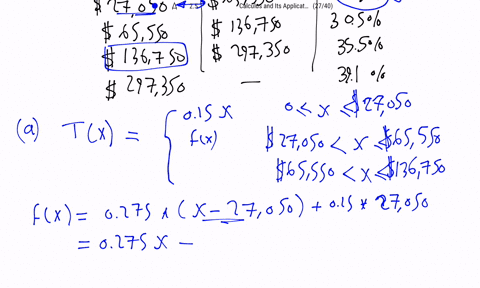 $ 27,050 Calculus and Its Applicat... (27/40)
$ 65,550 $ 136,750 30.5%
$ 136,750 $ 297,350 35.5%
$ 297,350 — 39.1 %
(a) T(x) = { 0.15 x 0 < x ≤ $27,050
f(x) $27,050 < x ≤ $65,550
$65,550 < x ≤ $136,750
f(x) = 0.275 * (x - 27,050) + 0.15 * 27,050
= 0.275 x -